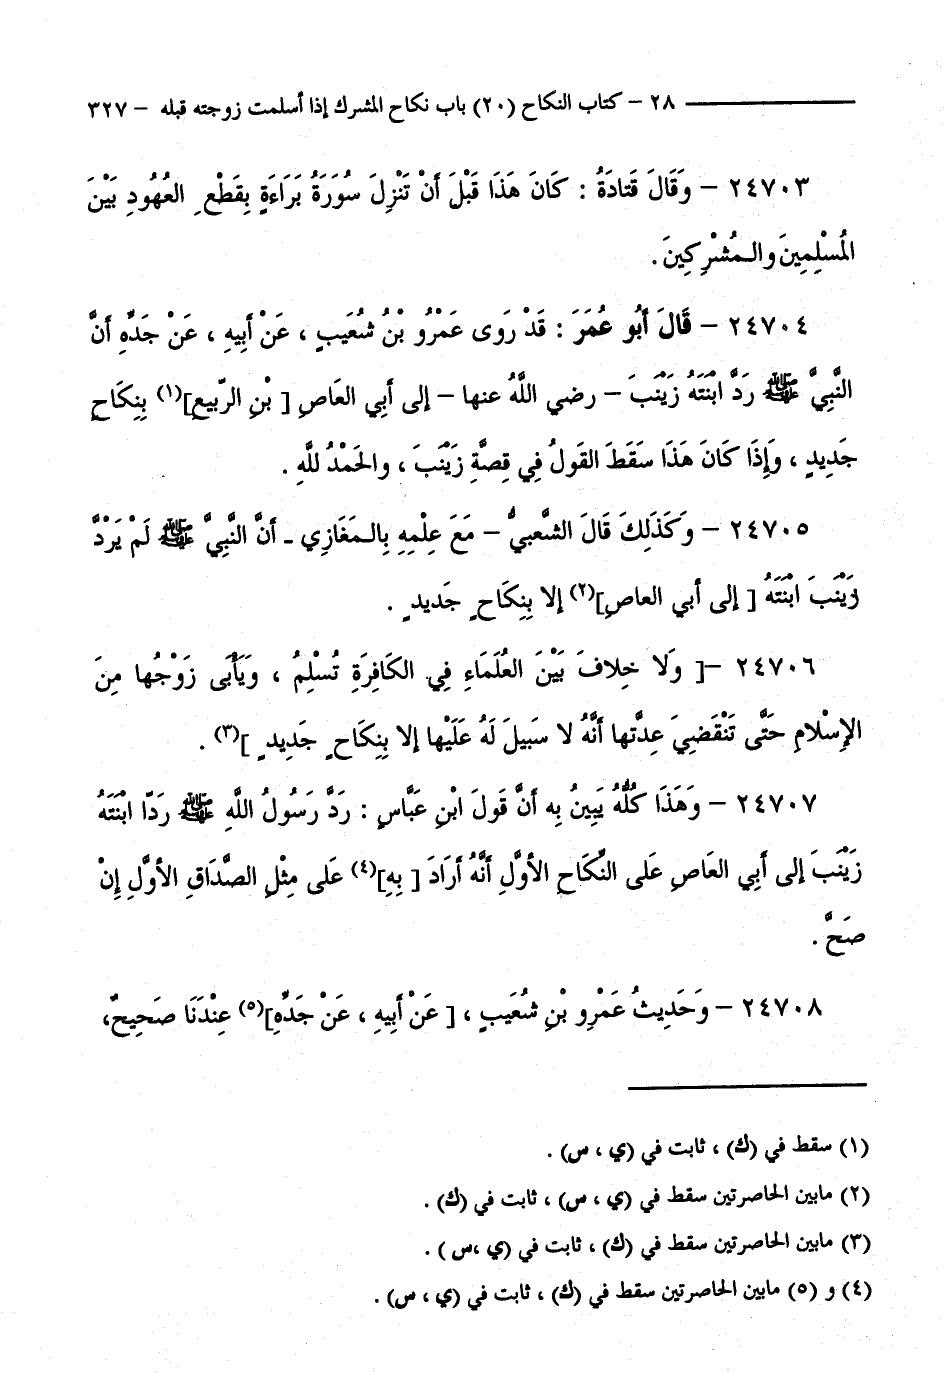 ٢٨ - كتاب النكاح (٢٠) باب نكاح المشرك إذا أسلمت زوجته قبله - ٣٢٧
٢٤٧٠٣ - وَقَالَ قَتادَةُ : كَانَ هَذَا قَبْلَ أَنْ تَنْزِلَ سُورَةُ بَرَاءَةٍ بِقَطْعِ العُهُودِ بَيْنَ
المُسْلِمِينَ والـمُشْرِكِينَ .
٢٤٧٠٤ - قَالَ أَبُو عُمَرَ : قَدْ رَوى عَمْرُو بْنُ شُعَيبٍ ، عَنْ أَبِيهِ ، عَنْ جَدِّهِ أَنَّ
النَّبِيَّ ﷺ رَدَّ ابْنَتَهُ زَيْنَبَ - رضي اللَّهُ عنها - إلى أَبِي العَاصِ [ بْنِ الرّبيعِ](١) بِنِكَاحٍ
جَدِيدٍ ، وَإِذَا كَانَ هَذَا سَقَطَ القَولُ فِي قِصَّةِ زَيْنَبَ ، والحَمْدُ للَّهِ .
٢٤٧٠٥ - وَكَذَلِكَ قَالَ الشَّعبيُّ - مَعَ عِلْمِهِ بِالـمَغَازِي ـ أَنَّ النَّبِيَّ ﷺ لَمْ يَرْدَّ
زَيْنَبَ ابْنَتَهُ [ إلى أبي العاصِ](٢) إلا بِنِكَاحٍ جَديدٍ .
٢٤٧٠٦ -[ وَلا خِلافَ بَيْنَ العُلَمَاءِ فِي الكَافِرَةِ تُسْلِمُ ، وَيَأْبَى زَوْجُها مِنَ
الإِسْلامِ حَتَّى تَنْقَضِيَ عِدَّتها أَنَّهُ لا سَبِيلَ لَهُ عَلَيْها إلا بِنِكَاحٍ جَدِيدٍ ](٣) .
٢٤٧٠٧ - وَهَذَا كُلُّهُ يَبِينُ بِهِ أَنَّ قَولَ ابْنِ عَبَّاسٍ : رَدَّ رَسُولُ اللَّهِ ﷺ رَدّا ابْنَتَهُ
زَيْنَبَ إلى أَبِي العَاصِ عَلى النِّكَاحِ الأوَّلِ أَنَّهُ أَرَادَ [ بِهِ](٤) عَلى مِثْلِ الصَّدَاقِ الأوَّلِ إِنْ
صَحَّ .
٢٤٧٠٨ - وَحَدِيثُ عَمْرِو بْنِ شُعَيبٍ ، [ عَنْ أَبِيهِ ، عَنْ جَدِّهِ](٥) عِنْدَنَا صَحِيحٌ،
(١) سقط في (ك) ، ثابت في (ي ، س) .
(٢) مابين الحاصرتين سقط في (ي ، س) ، ثابت في (ك) .
(٣) مابين الحاصرتين سقط في (ك) ، ثابت في (ي ،س ) .
(٤) و (٥) مابين الحاصرتين سقط في (ك) ، ثابت في (ي ، س) .